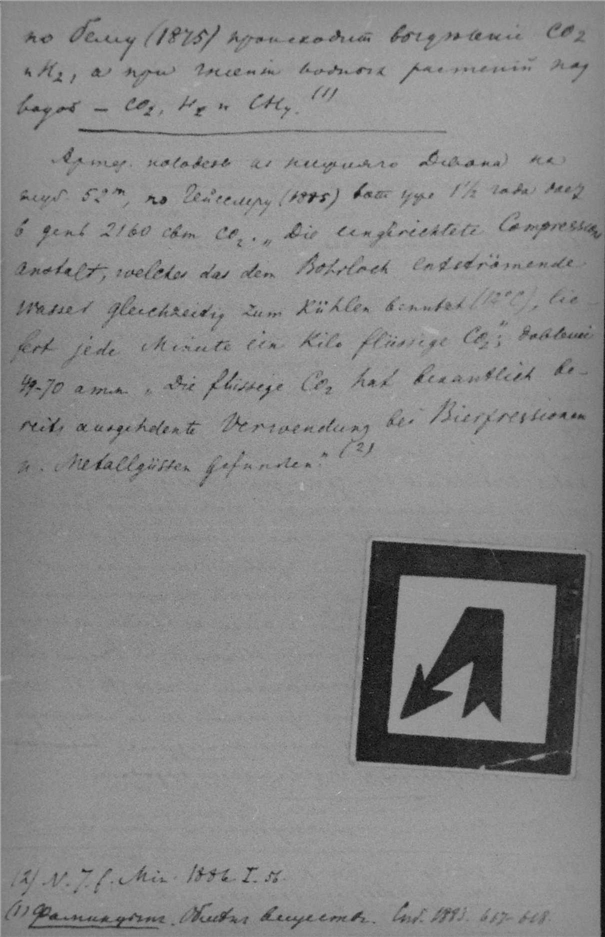 по Бему (1875) происходит выделенiе CO2
и H2, а при гнiенiи водных растенiй над
водой – CO2, H2 и CH4. (1)
Артез. колодезь из нижняго Девона на
глуб. 52m, по Гейсслеру (1885) вот уже 1½ года дает
в день 2160 cbm CO2. „Die eingerichtete Compressions
anstalt, welches das dem Bohrloch entströmende
Wasser gleichzeitig zum Kühlen benutzt (12°C), lie-
fert jede Minute ein Kilo flüssige CO2“;
49-70 атм „Die flüssige CO2 hat bekanntlich be-
reits ausgedehnte Verwendung bei Bierpressionen
u. Metallgüssen gefunden.“ (2)
(2) N. J. f. Min. 1886. I. 56.
(1) Фаминцын. Обмен веществ. Спб. 1883. 617-618.